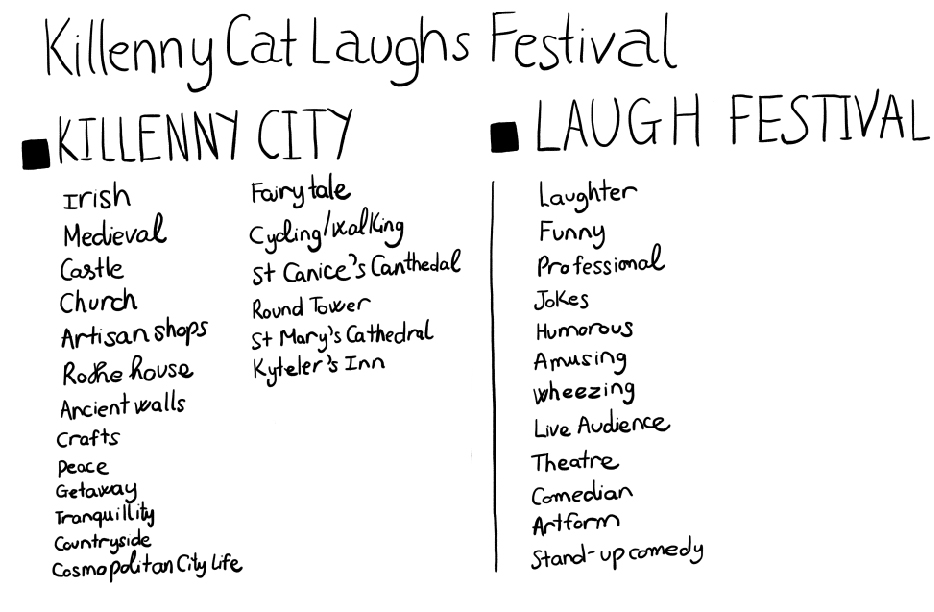 Killenny Cat Laughs Festival
KILLENNY CITY
Irish
Medieval
Castle
Church
Artisan shops
Rothe house
Ancient walls
Crafts
Peace
Getaway
Tranquillity
Countryside
Cosmopolitan City Life
Fairytale
Cycling/walking
St Canice's Canthedal
Round Tower
St Mary's Cathedral
Kyteler's Inn
LAUGH FESTIVAL
Laughter
Funny
Professional
Jokes
Humorous
Amusing
Wheezing
Live Audience
Theatre
Comedian
Artform
Stand-up comedy